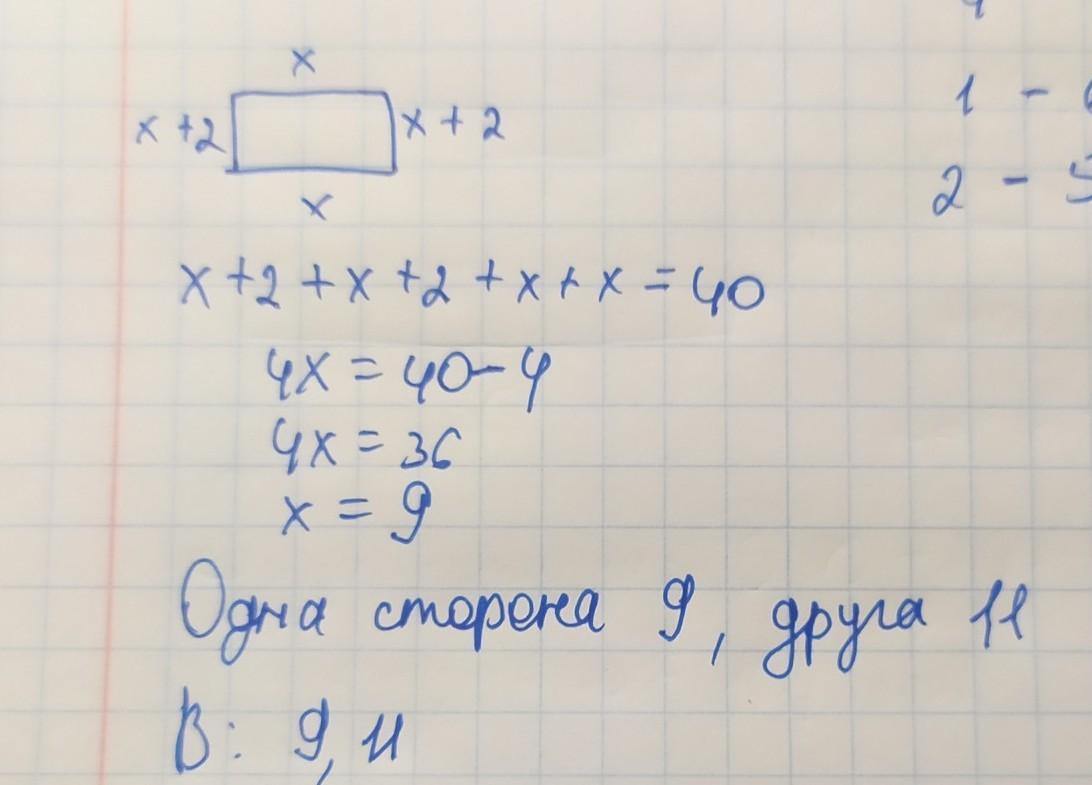 x
x + 2
x + 2
x
x + 2 + x + 2 + x + x = 40
4x = 40 - 4
4x = 36
x = 9
Одна сторона 9, друга 11
В: 9, 11
1 -
2 - 5